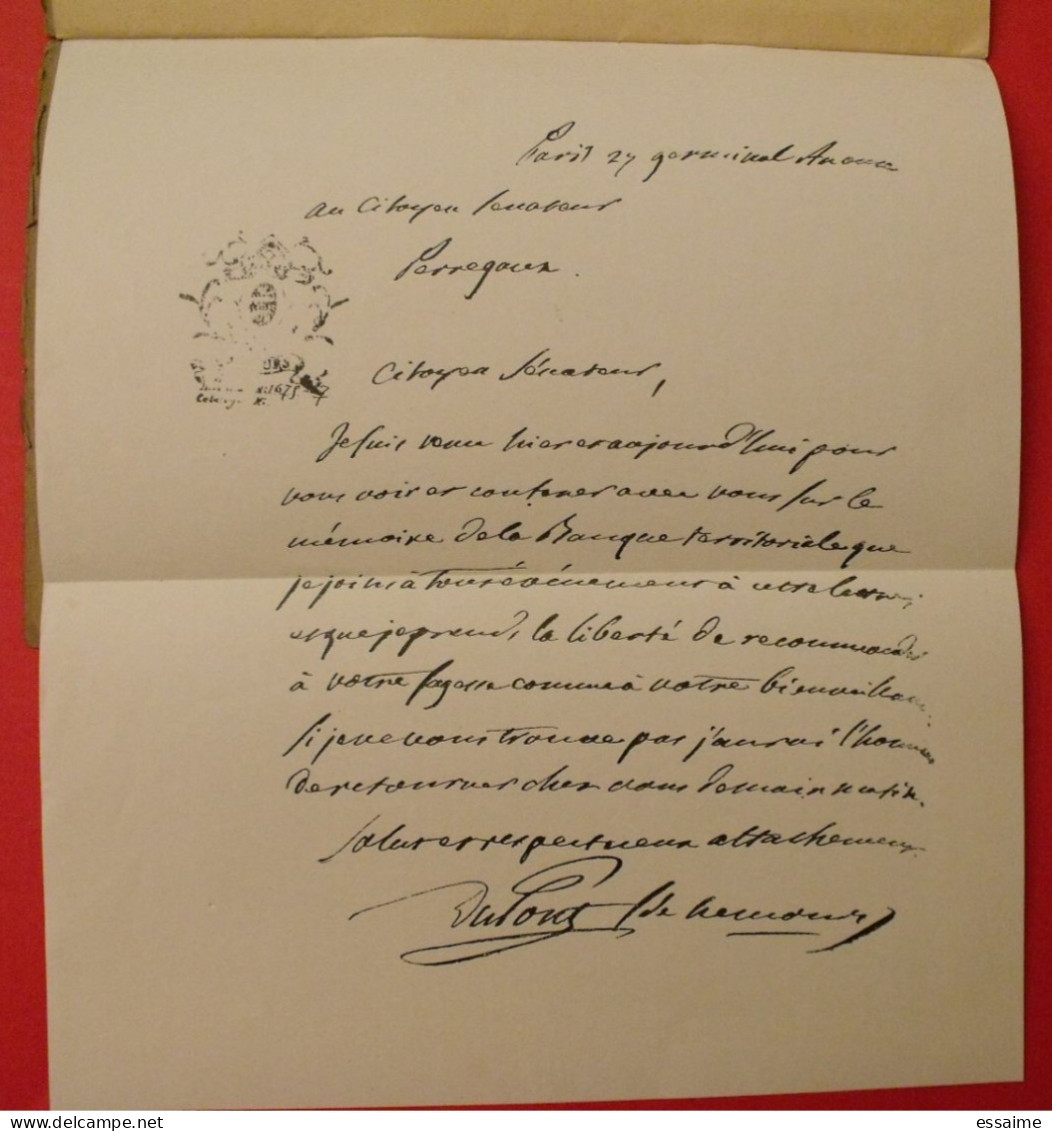 Paris 27 germinal An onze
au Citoyen Senateur
Perregaux.
Citoyen Sénateur,
Je suis venu hier et aujourd'hui pour
vous voir et conferer avec vous sur le
mémoire de la Banque territoriale que
je joins à tout événement à cette lettre
et que je prends la liberté de recommander
à votre sagesse comme à votre bienveillance.
Si je ne vous trouve pas j'aurai l'honneur
de retourner chez vous demain matin.
Salut et respectueux attachement
DuPont (de Nemours)
essaime
delcampe.net